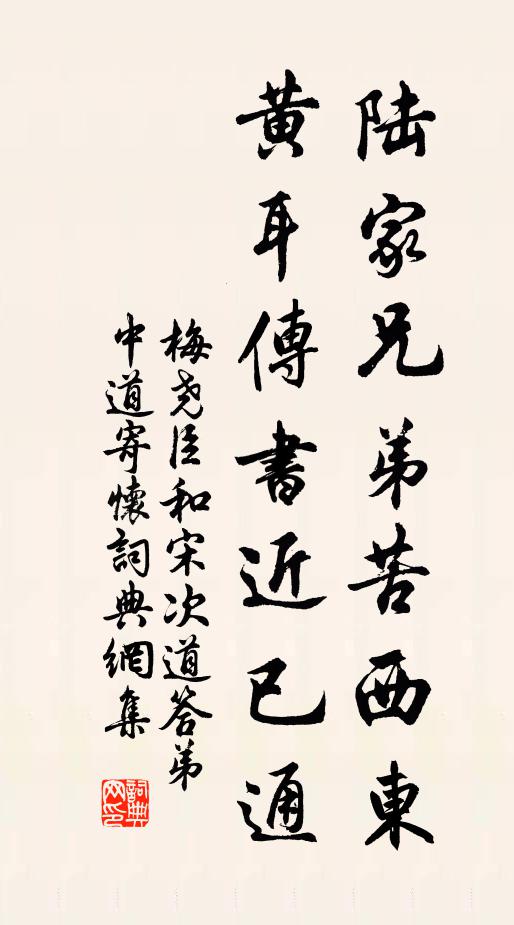 陸家兄弟苦西東
黃耳傳書近已通
梅尧臣和宋次道答弟
中道寄懷詞典網集
詞典
网印